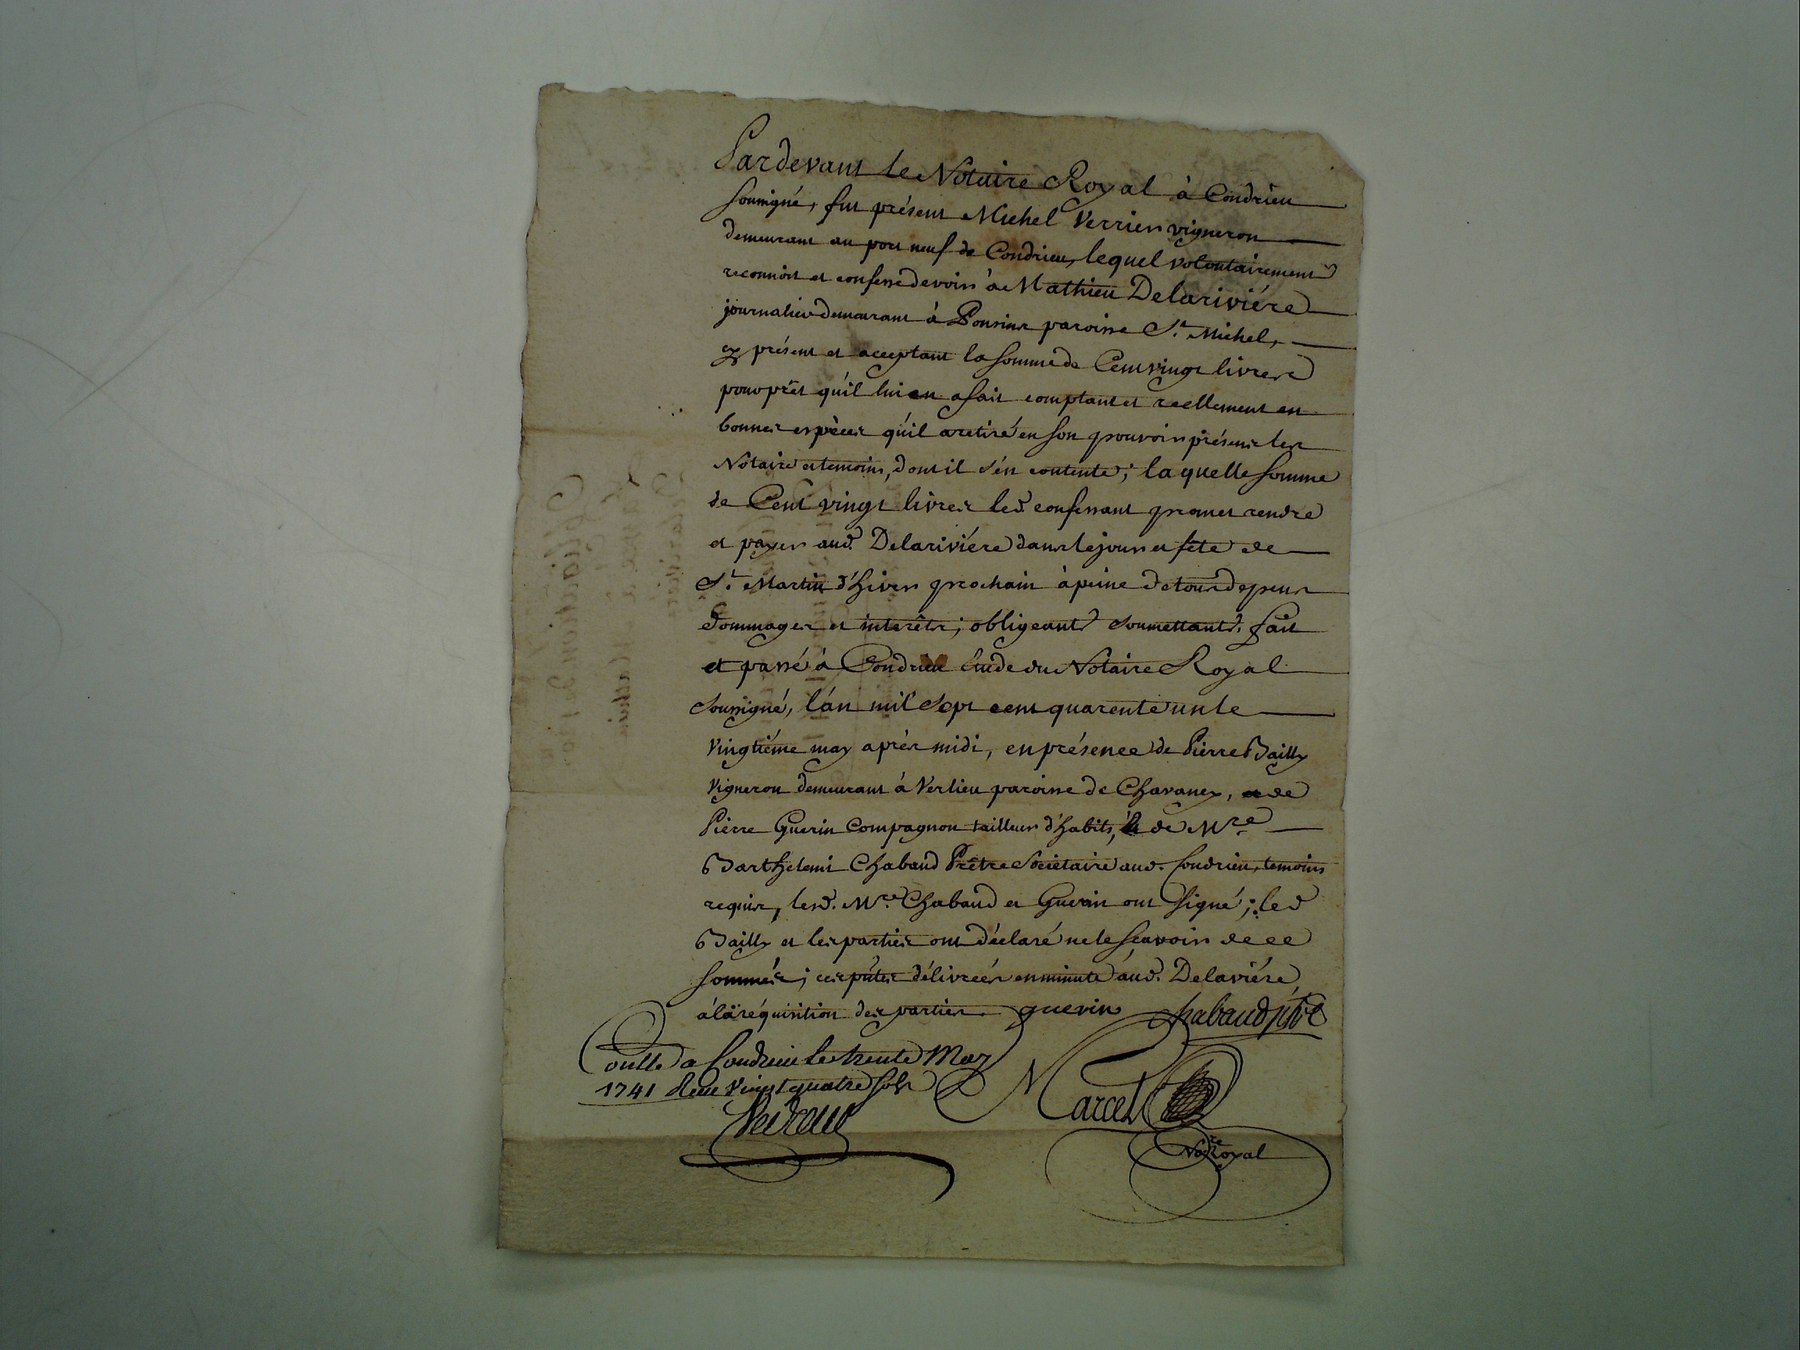 Pardevant le Notaire Royal à Condrieu
soussigné, fut présent Michel Verrier vigneron
demeurant au port neuf de Condrieu, lequel volontairement
reconnoit et confesse devoir à Mathieu Delariviére
journalier demeurant à paroisse St. Michel,
cy présent et acceptant la somme de Cent vingt livres
pour prêt qu'il lui en a fait comptant et reellement en
bonnes espèces qu'il a retiré en son pouvoir présens les
Notaire et temoins, dont il s'én contente; la quelle somme
de Cent vingt livres led confessant promet rendre
et payer aud. Delariviére dans le jour et fête de
St. Martin d'hiver prochain à peine de tous depens
dommages et interêts; obligeant soumettant. fait
et passé à Condrieu étude du Notaire Royal
soussigné, l'án mil sept cent quarente un le
vingtiéme may aprés midi, en présence de Pierre Bailly
vigneron demeurant à Verlieu paroisse de Chavaney, de
Pierre Guerin compagnon tailleur d'habits, & de Mre
Barthelemi Chabaud Prêtre Sociétaire aud. Condrieu, temoins
requis, lesd. Mre Chabaud et Guerin ont signé; led
Bailly et les parties ont déclaré ne le scavoir de ce
sommés; ces pñtes délivrées en minute aud. Delaviére
à la réquisition des parties. guerin Chabaud ptre
Conllé a Condrieu le trente May
1741 vingt quatre sols
Marcel
Nore Royal